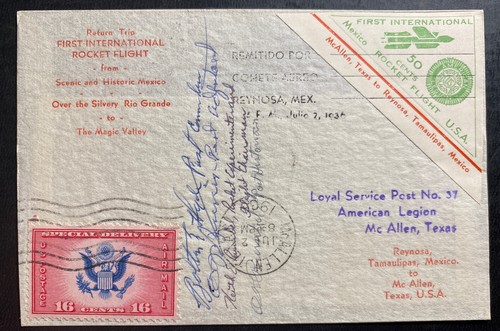 Return Trip
FIRST INTERNATIONAL
ROCKET FLIGHT
- from -
Scenic and Historic Mexico
-
Over the Silvery Rio Grande
- to -
The Magic Valley
REMITIDO POR
COHETE AEREO
REYNOSA, MEX.
Julio 2, 1936
FIRST INTERNATIONAL
Mexico
50
CENTS
ROCKET FLIGHT
U.S.A.
McAllen, Texas to Reynosa, Tamaulipas, Mexico
Loyal Service Post No. 37
American Legion
Mc Allen, Texas
Reynosa,
Tamaulipas, Mexico.
to
Mc Allen,
Texas, U.S.A.
SPECIAL DELIVERY
U.S. POSTAGE
AIR MAIL
16 CENTS 16
Post Commander
Rocket Experiment
JUL 2